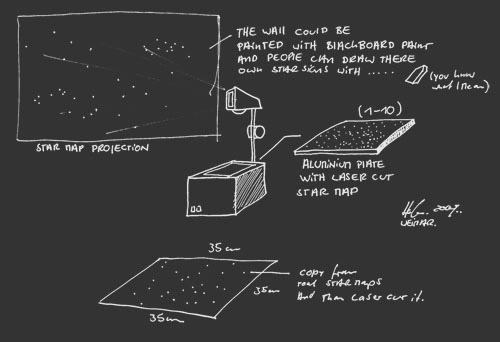 THE WALL COULD BE
PAINTED WITH BLACKBOARD PAINT
AND PEOPLE CAN DRAW THERE
OWN STAR SIGNS WITH .....
(YOU KNOW
WHAT I MEAN)
STAR MAP PROJECTION
(1-10)
ALUMINIUM PLATE
WITH LASER CUT
STAR MAP
2007..
WEIMAR.
35cm
35cm
35cm
COPY from
real STAR MAPS
And then Laser cut it.